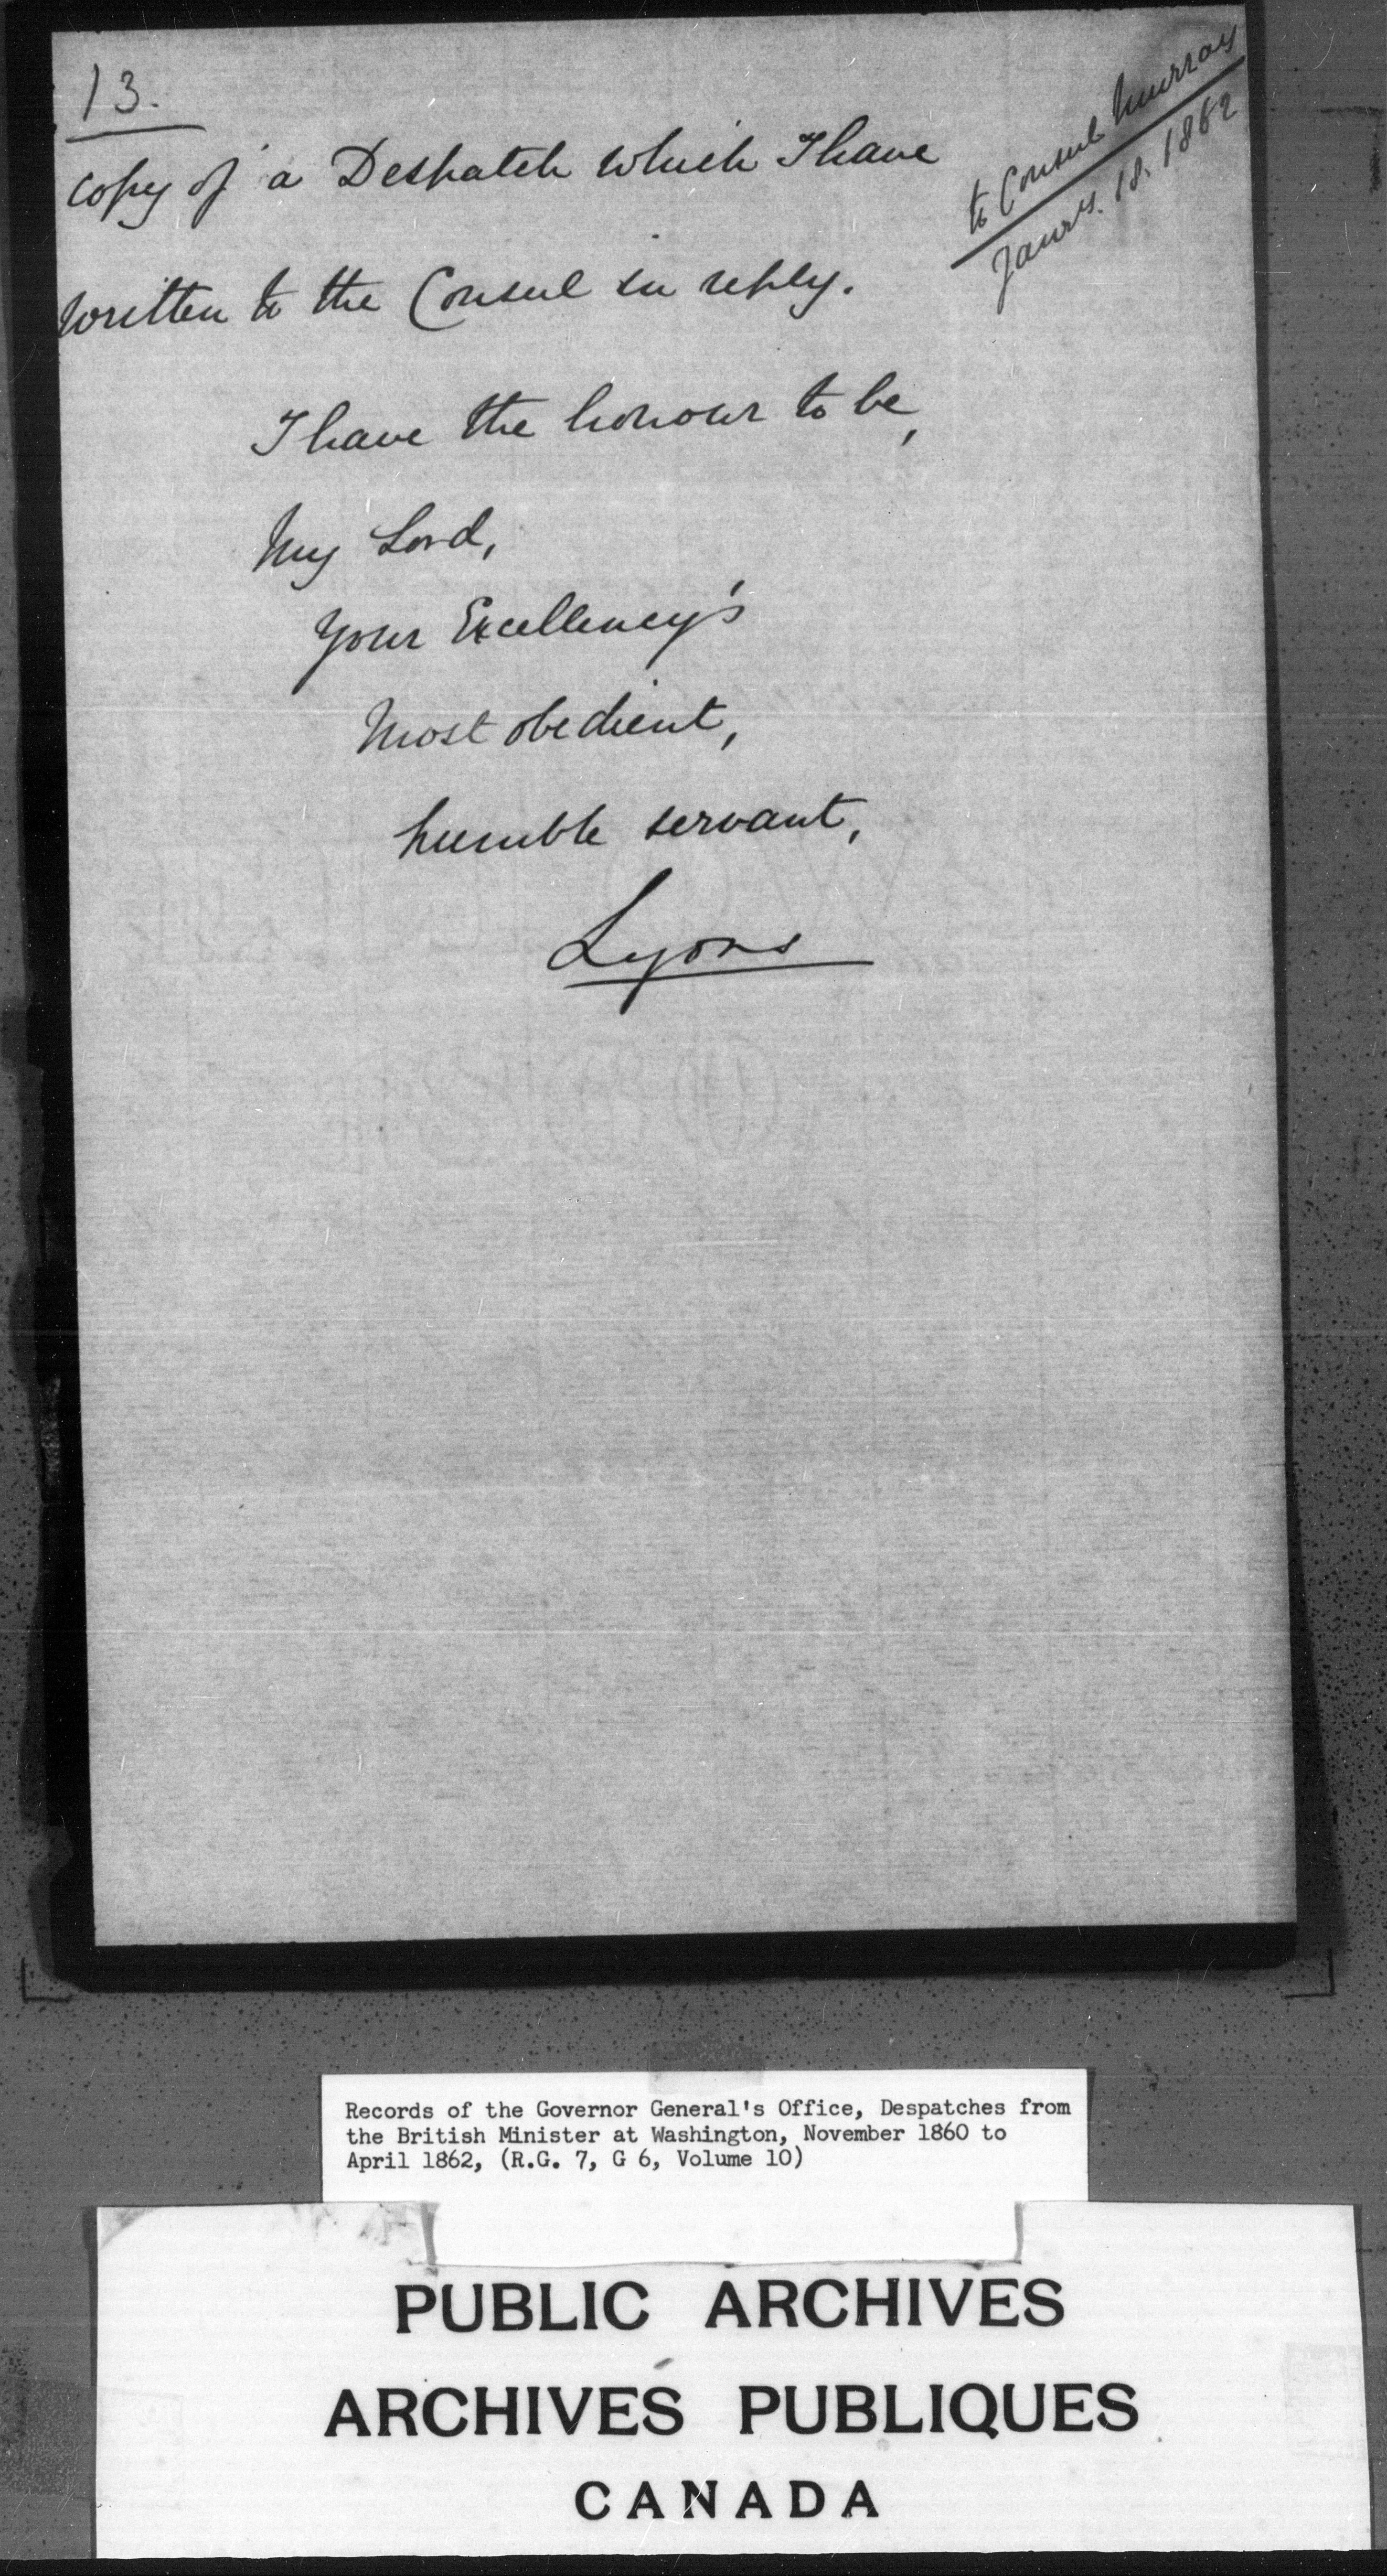 13.
to Consul Murray
Janry. 18. 1862
copy of a Despatch which I have
written to the Consul in reply.
I have the honour to be,
My Lord,
Your Excellency's
Most obedient,
humble servant,
Lyons
Records of the Governor General's Office, Despatches from
the British Minister at Washington, November 1860 to
April 1862, (R.G. 7, G 6, Volume 10)
PUBLIC ARCHIVES
ARCHIVES PUBLIQUES
CANADA